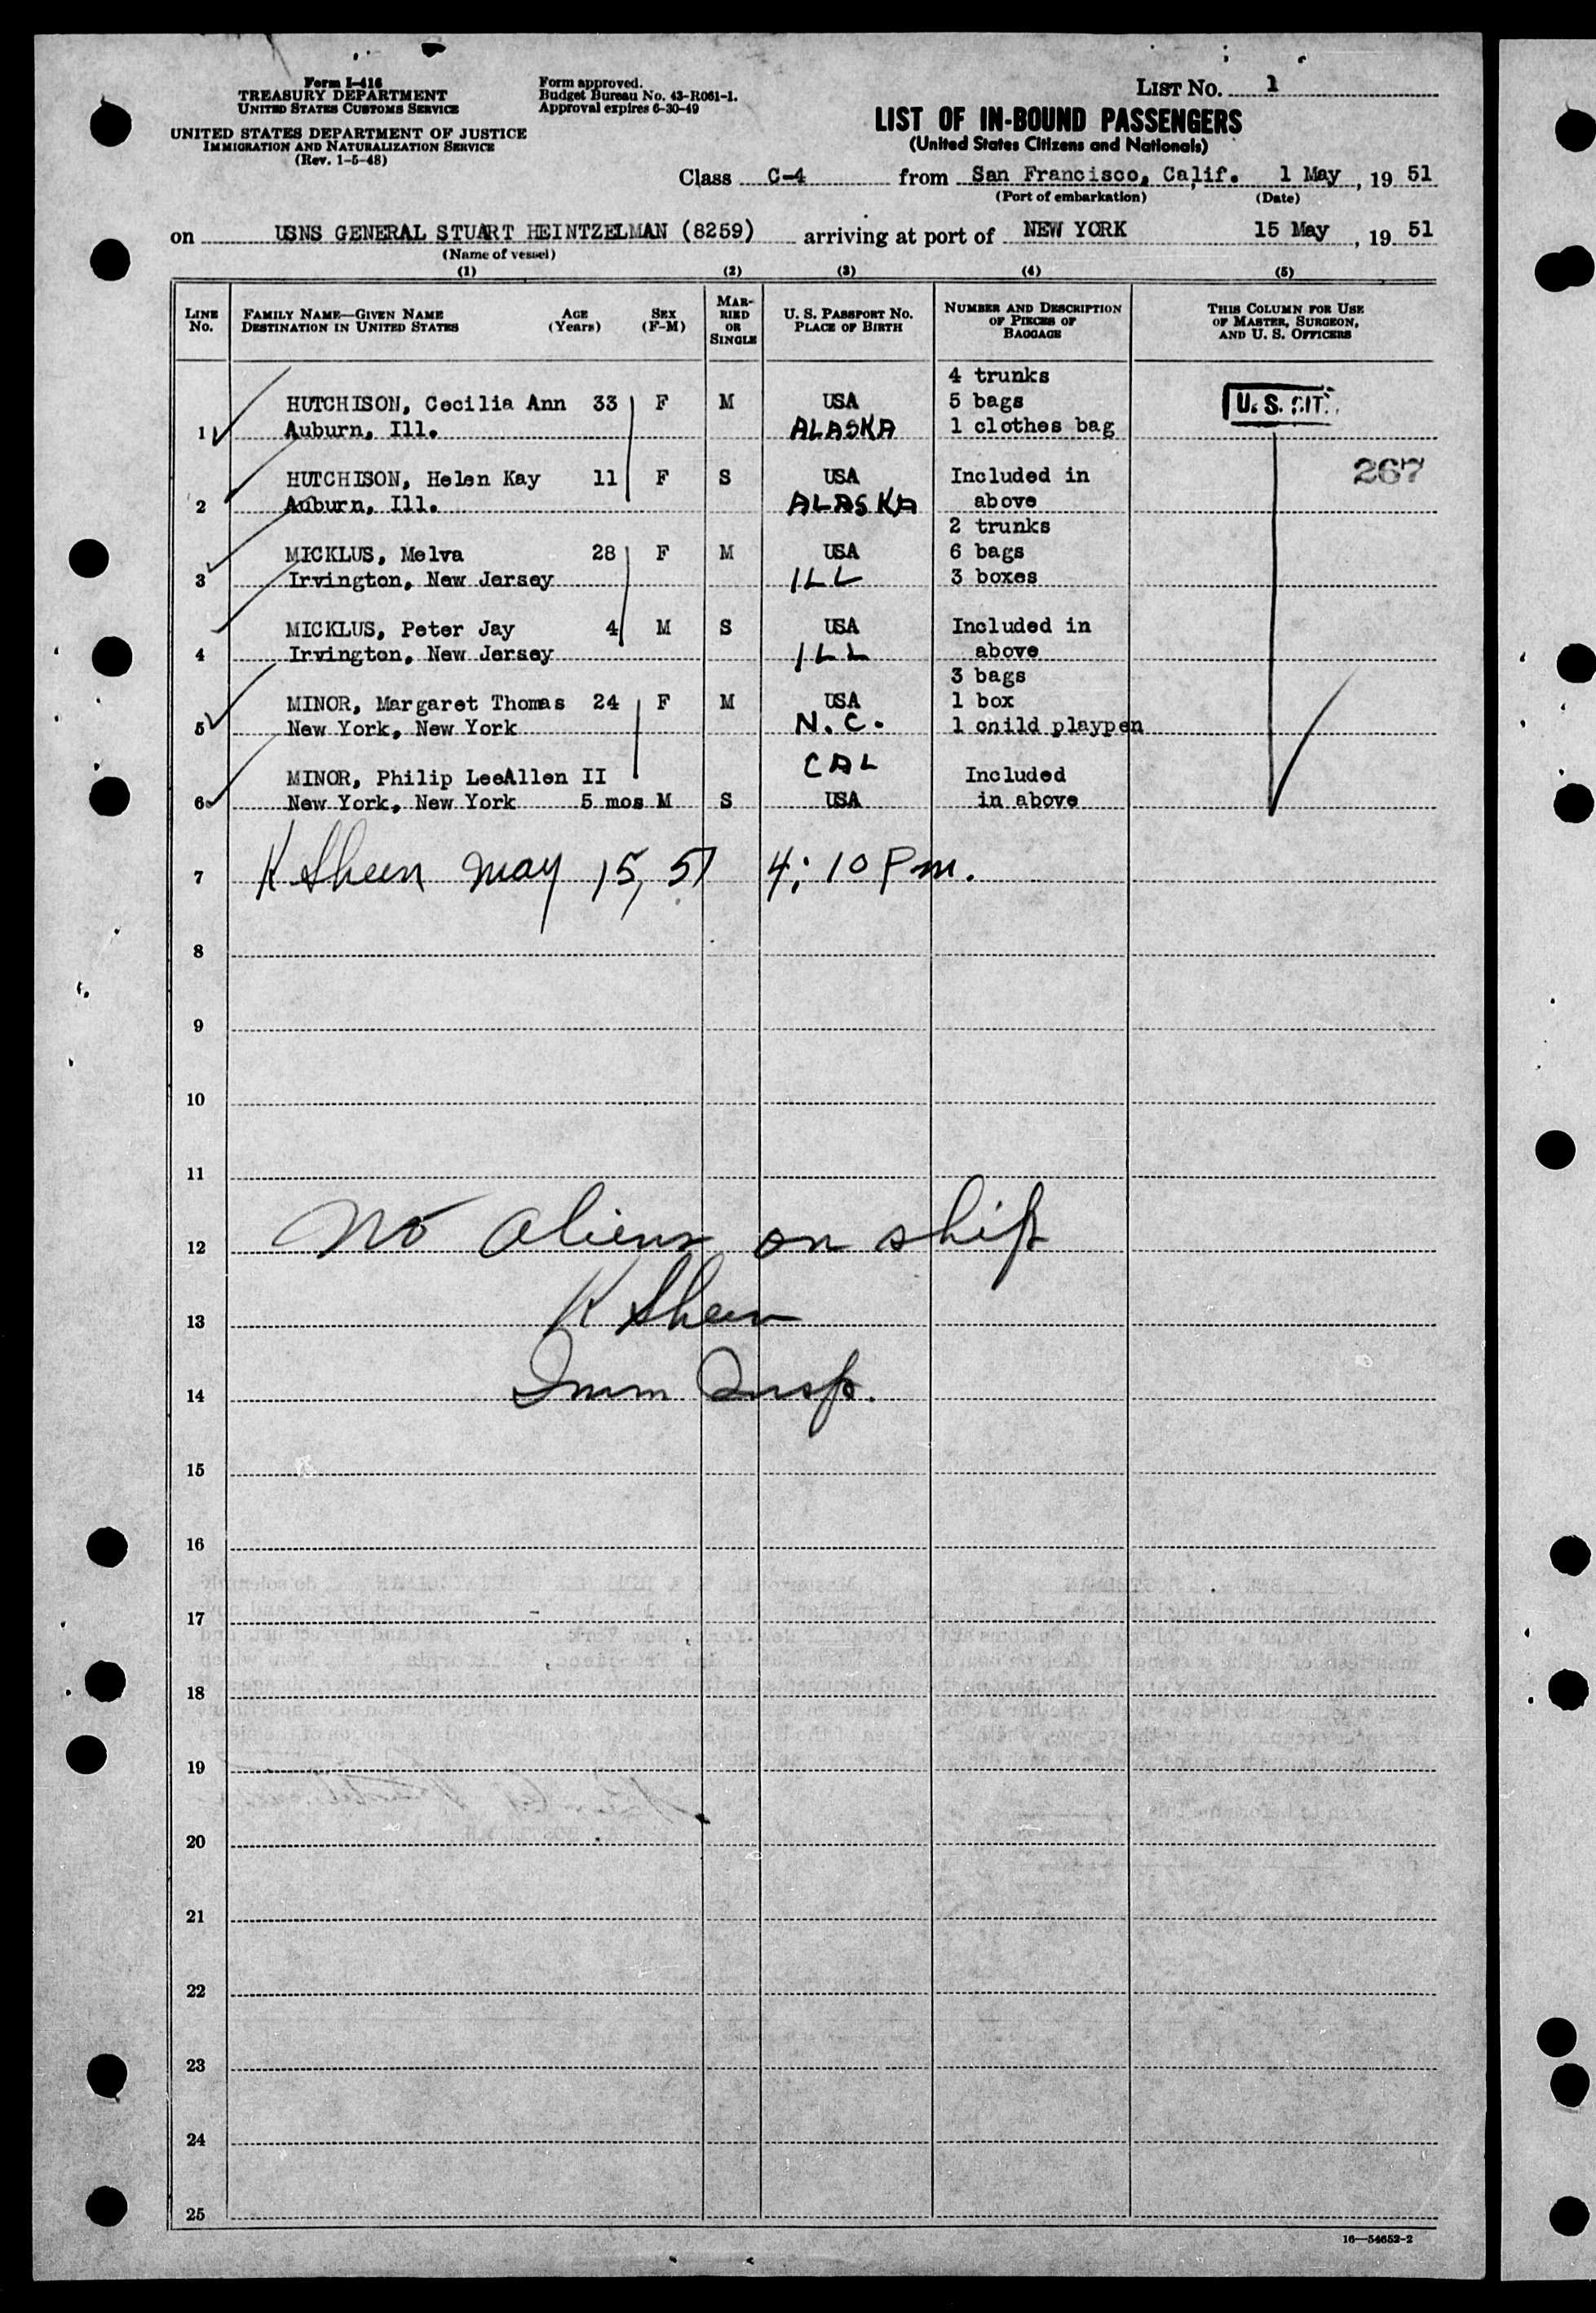 Form I-416
TREASURY DEPARTMENT
UNITED STATES CUSTOMS SERVICE
UNITED STATES DEPARTMENT OF JUSTICE
IMMIGRATION AND NATURALIZATION SERVICE
(Rev. 1-5-48)
Form approved.
Budget Bureau No. 43-R061-1.
Approval expires 6-30-49
LIST No. 1
LIST OF IN-BOUND PASSENGERS
(United States Citizens and Nationals)
Class C-4 from San Francisco, Calif. 1 May, 19 51
(Port of embarkation) (Date)
on USNS GENERAL STUART HEINTZELMAN (8259) arriving at port of NEW YORK 15 May, 19 51
(Name of vessel)
(1) (2) (3) (4) (5)
LINE No. FAMILY NAME—GIVEN NAME DESTINATION IN UNITED STATES AGE (Years) SEX (F-M) MARRIED OR SINGLE U. S. PASSPORT No. PLACE OF BIRTH NUMBER AND DESCRIPTION OF PIECES OF BAGGAGE THIS COLUMN FOR USE OF MASTER, SURGEON, AND U. S. OFFICERS
4 trunks
HUTCHISON, Cecilia Ann 33 F M USA 5 bags U. S. CIT.
1 Auburn, Ill. ALASKA 1 clothes bag
HUTCHISON, Helen Kay 11 F S USA Included in 267
2 Auburn, Ill. ALASKA above
2 trunks
MICKLUS, Melva 28 F M USA 6 bags
3 Irvington, New Jersey ILL 3 boxes
MICKLUS, Peter Jay 4 M S USA Included in
4 Irvington, New Jersey ILL above
3 bags
MINOR, Margaret Thomas 24 F M USA 1 box
5 New York, New York N.C. 1 cnild playpen
MINOR, Philip LeeAllen II CAL Included
6 New York, New York 5 mos M S USA in above
7 K Sheen May 15, 51 4:10 Pm.
8
9
10
11
12 No aliens on ship
13 K Sheen
14 Imm Insp.
15
16
17
18
19
20
21
22
23
24
25
16—54652-2